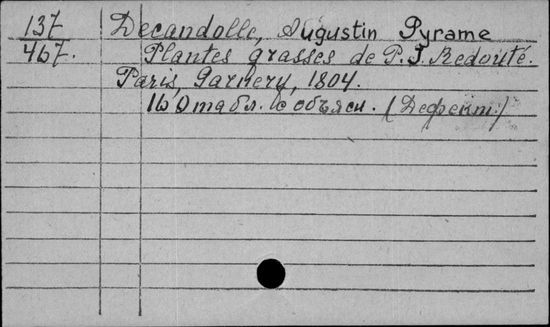 137 Decandolle, Augustin Pyrame
467. Plantes grasses de P. J. Redouté.
Paris, Garnery, 1804.
160 табл. с объясн. (Дефект.)